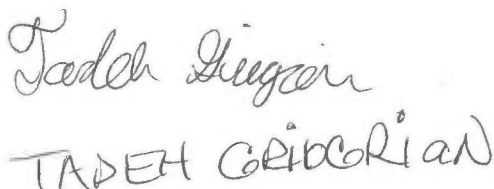 Tadeh Giugrian
TADEH GRIDGORIAN